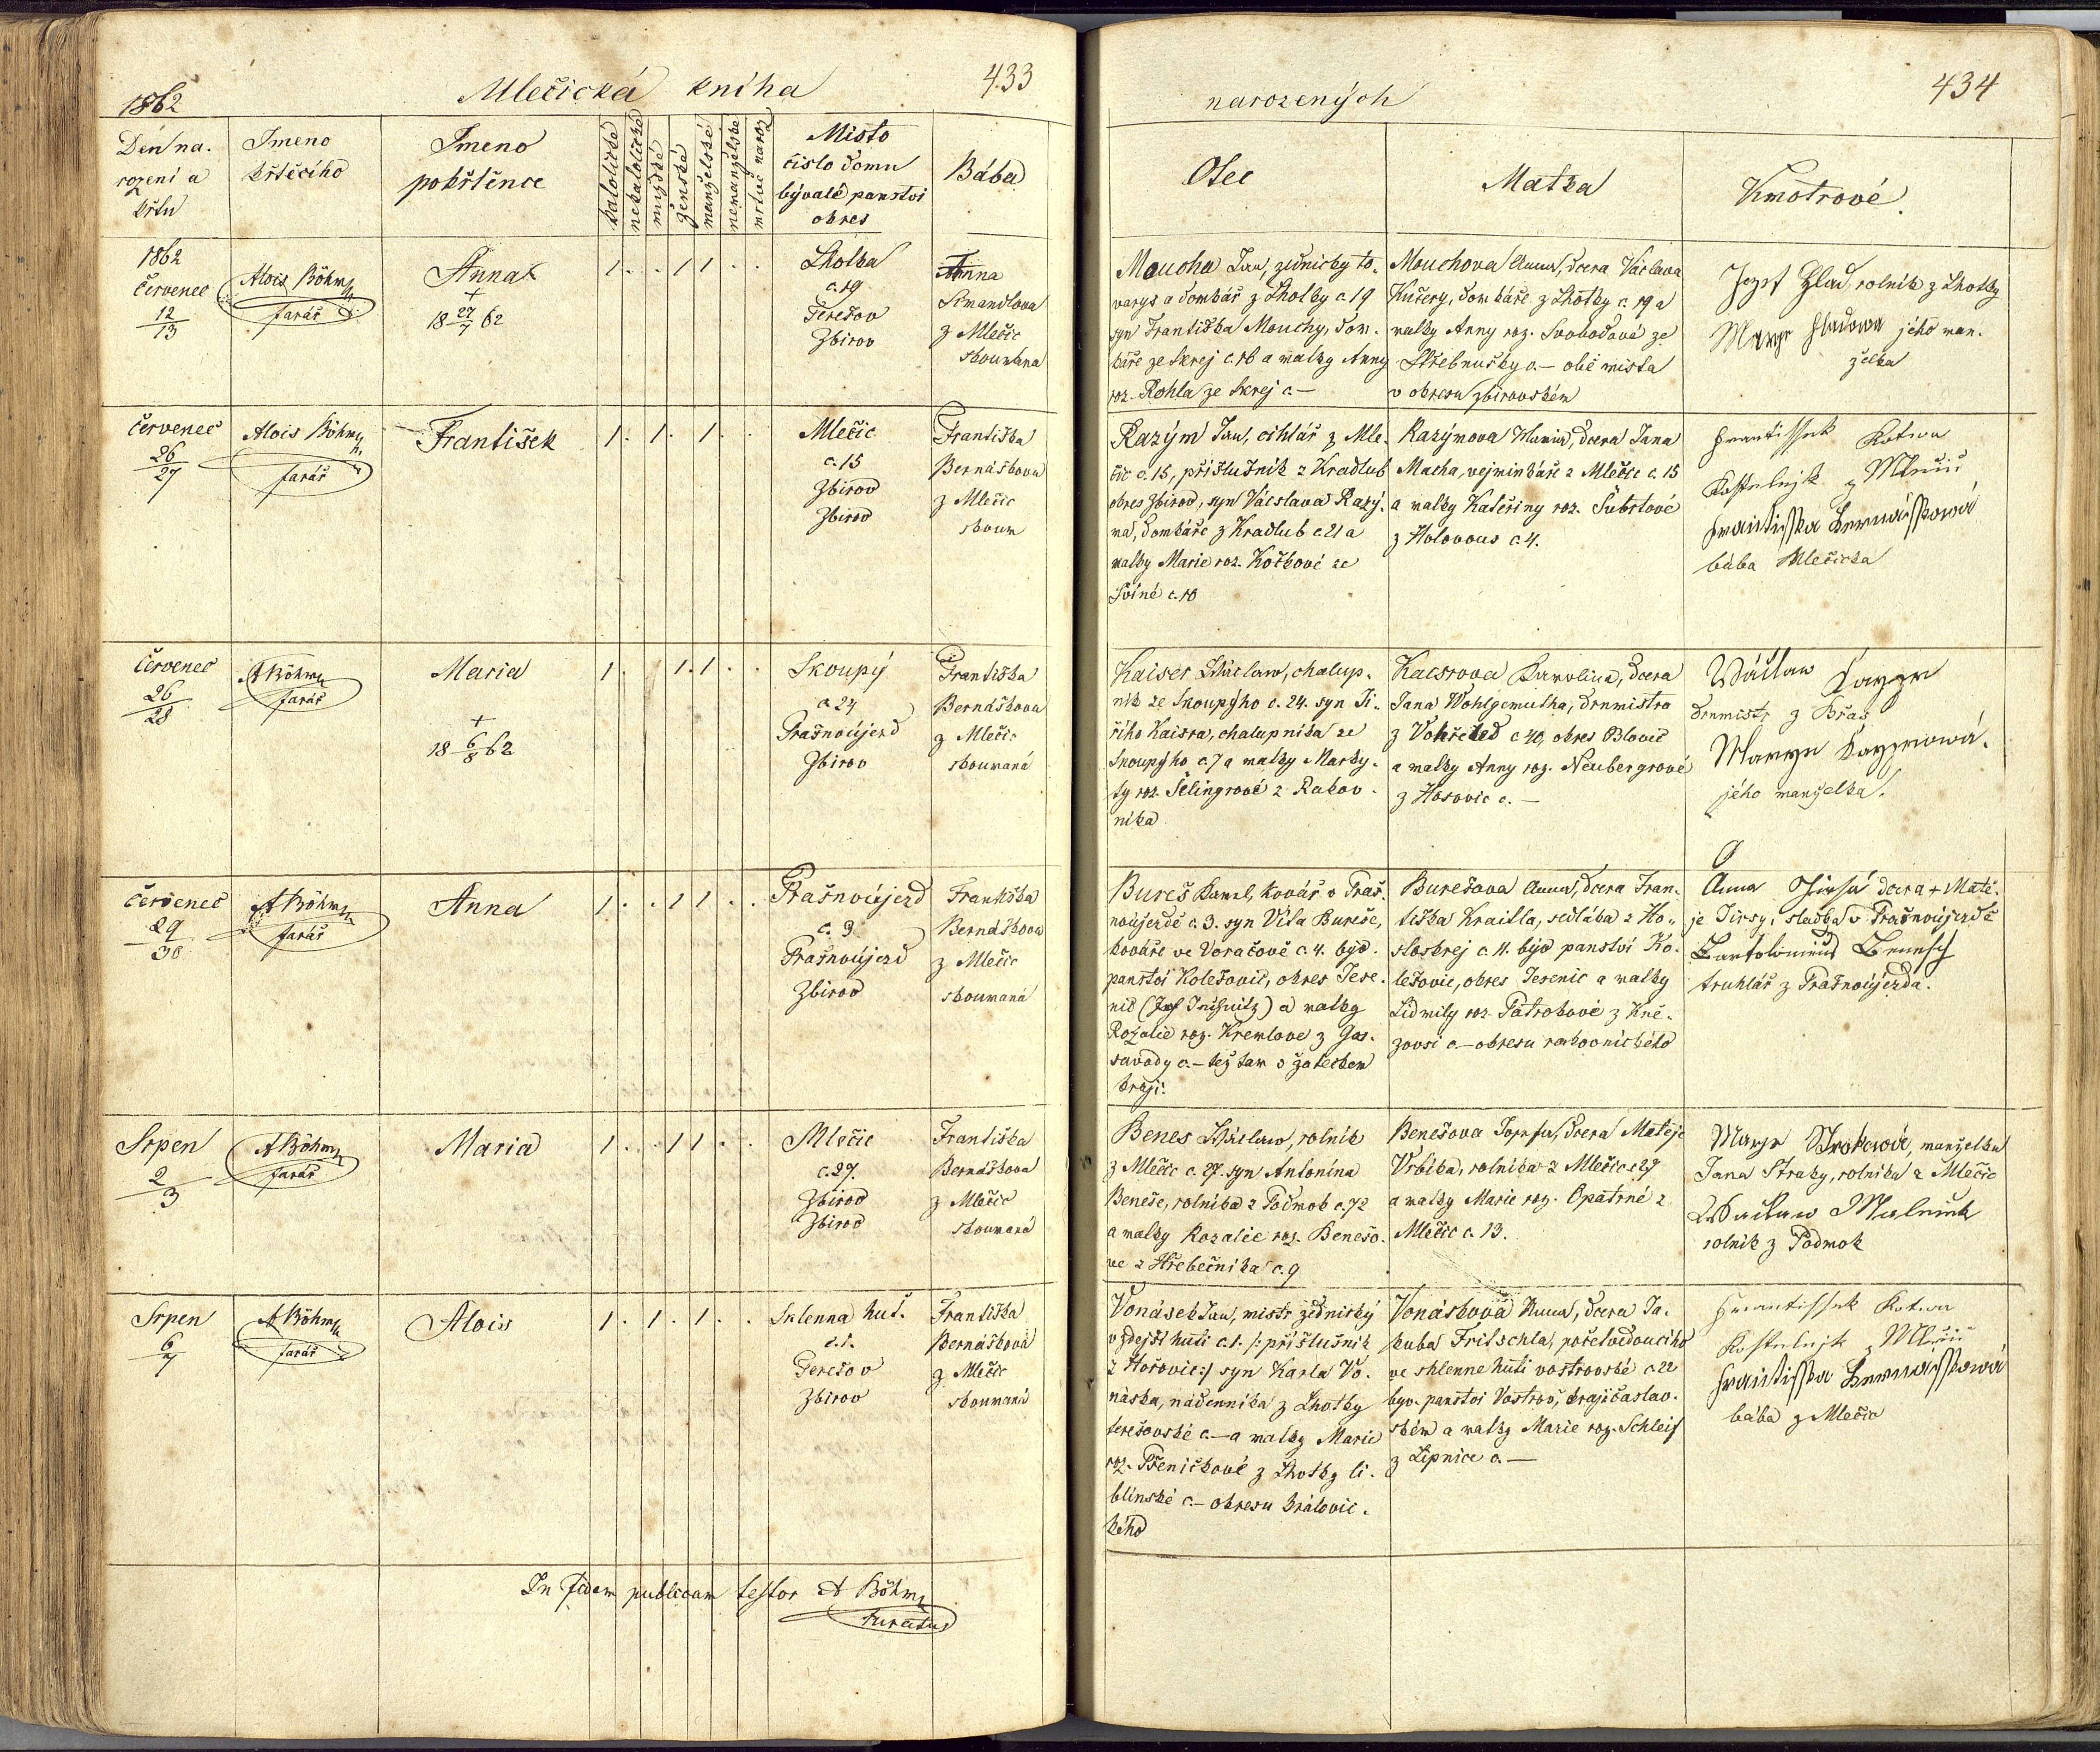 1862
Mlečická kniha
433
Den na-
rození a
křtu
Jmeno
křtěcího
Jmeno
pokřtěnce
katolické
nekatolické
mužské
ženské
manželské
nemanželské
mrtvě naroz
Misto
číslo domu
bývalé panství
okres
Bába
1862
červenec
12
13
Alois Böhm
farář
Anna
+
18 27/7 62
1 . . 1 1 . .
Lholka
c. 19
Terešov
Zbirov
Anna
z Mlečic
zkoumana
červenec
26
27
Alois Böhm
farář
František
1 . 1 . 1 . .
Mlečic
c. 15
Zbirov
Zbirov
Františka
Bernášková
z Mlečic
zkoum
červenec
26
28
A Böhm
farář
Maria
+
18 6/8 62
1 . 1 . 1 . .
Skoupý
c. 24
Prašnoújezd
Zbirov
Františka
Bernášková
z Mlečic
zkoumaná
červenec
29
30
A Böhm
farář
Anna
1 . . 1 1 . .
Prašnoújezd
c. 3
Prašnoújezd
Zbirov
Františka
Bernášková
z Mlečic
zkoumaná
Srpen
2
3
A Böhm
farář
Maria
1 . . 1 1 . .
Mlečic
c. 27.
Zbirov
Zbirov
Františka
Bernášková
z Mlečic
zkoumaná
Srpen
6
7
A Böhm
farář
Alois
1 . 1 . 1 . .
Sklenna huť.
c. 1.
Terešov
Zbirov
Františka
Bernášková
z Mlečic
zkoumaná
In fidem publicam testor A Böhm
curatus
narozených
434
Otec
Matka
Kmotrové
Moucha Jan, zednický to-
varyš a domkář z Lhotky c. 19
syn Františka Mouchy, dom-
káře ze Skrej c. 16 a matky Anny
roz. Rohla ze Skrej c. —
Mouchova Anna, dcera Václava
Kučery, domkáře z Lhotky c. 19 a
matky Anny roz. Svobodové ze
c. — obě místa
v okresu zbirovském
Jozef Hlad, rolník z Lhotky
Marye Hladowa jeho man-
želka
Razým Jan, cihlář z Mle-
čic c. 15, příslušník z Hradlub
okres Zbirov, syn Václava Razý-
ma, domkáře z Hradlub c. 21 a
matky Marie roz. Kočkové ze
Sviné c. 10
Razýmova Maria, dcera Jana
Macha, vejminkáře z Mlečic c. 15
a matky Kateřiny roz. Šubrtové
z Holovous c. 4.
Frantissek Kotwa
Kostelnjk z Mlečic
Frantisska Bernásskowá
bába Mlečicka
Kaiser Wáclaw, chalup-
ník ze Skoupýho c. 24. syn Ji-
řího Kaisra, chalupníka ze
Skoupýho c. 7 a matky Marky-
ty roz. Šelingrové z Rakov-
níka
Kaisrova Karolina, dcera
Jana Wohlgemutha, drnmistra
z c. 40, okres Blovic
a matky Anny roz. Neubergrové
z Hořovic c. —
Wáclaw Kayzr
drnmistr z Břas
Marye Kayzrowá.
jeho manželka.
Bureš Karel, kovář v Praš-
noújezdě c. 3. syn Víta Bureše,
kováře ve Voračově c. 4. býv.
panství Kolešovic, okres Jese-
nic a matky
Rozalie roz. Kremlove z
c. — též tam v žateckem
kraji.
Burešova Anna, dcera Fran-
tiška Kraitla, sedláka z Ho-
stokrej c. 11. býv panství Ko-
lešovic, okres Jesenic a matky
Lidmily roz. Patrokové z Kně-
žovsi c. — okresu rakovnického
Anna Jirsá dcera + Matě-
je Jirsy, sládka v Prašnoújezdě
Bartoloměus Benesch
truhlář z Prašnoújezda.
Benes Wáclaw, rolník
z Mlečic c. 27. syn Antonína
Beneše, rolníka z Podmok c. 72
a matky Rozalie roz. Benešo-
ve z Hřebečníka c. 9
Benešova Josefa, dcera Matěje
Vrbíka, rolníka z Mlečic c. 27
a matky Marie roz. Opatrné z
Mlečic c. 13.
Marye Strakowá, manželka
Jana Straky, rolníka z Mlečic
Wáclaw
rolník z Podmok
Vonásek Jan, mistr zednický
v zdejší huti c. 1. /: příslušník
z Hořovic :/ syn Karla Vo-
náska, nádenníka z Lhotky
terešovské c. — a matky Marie
roz. Pšeničkové z Lhotky li-
blínské c. — okresu královic-
kého
Vonásková Anna, dcera Ja-
kuba Fritschla, pořetvedoucího
ve sklenne huti vostrovské c. 22
byv. panství Vostrov, kraji čáslav-
ském a matky Marie roz. Schleif
z Lipnice c. —
Frantissek Kotwa
Kostelnjk z Mlečic
Frantisska Bernásskowá
bába z Mlečic